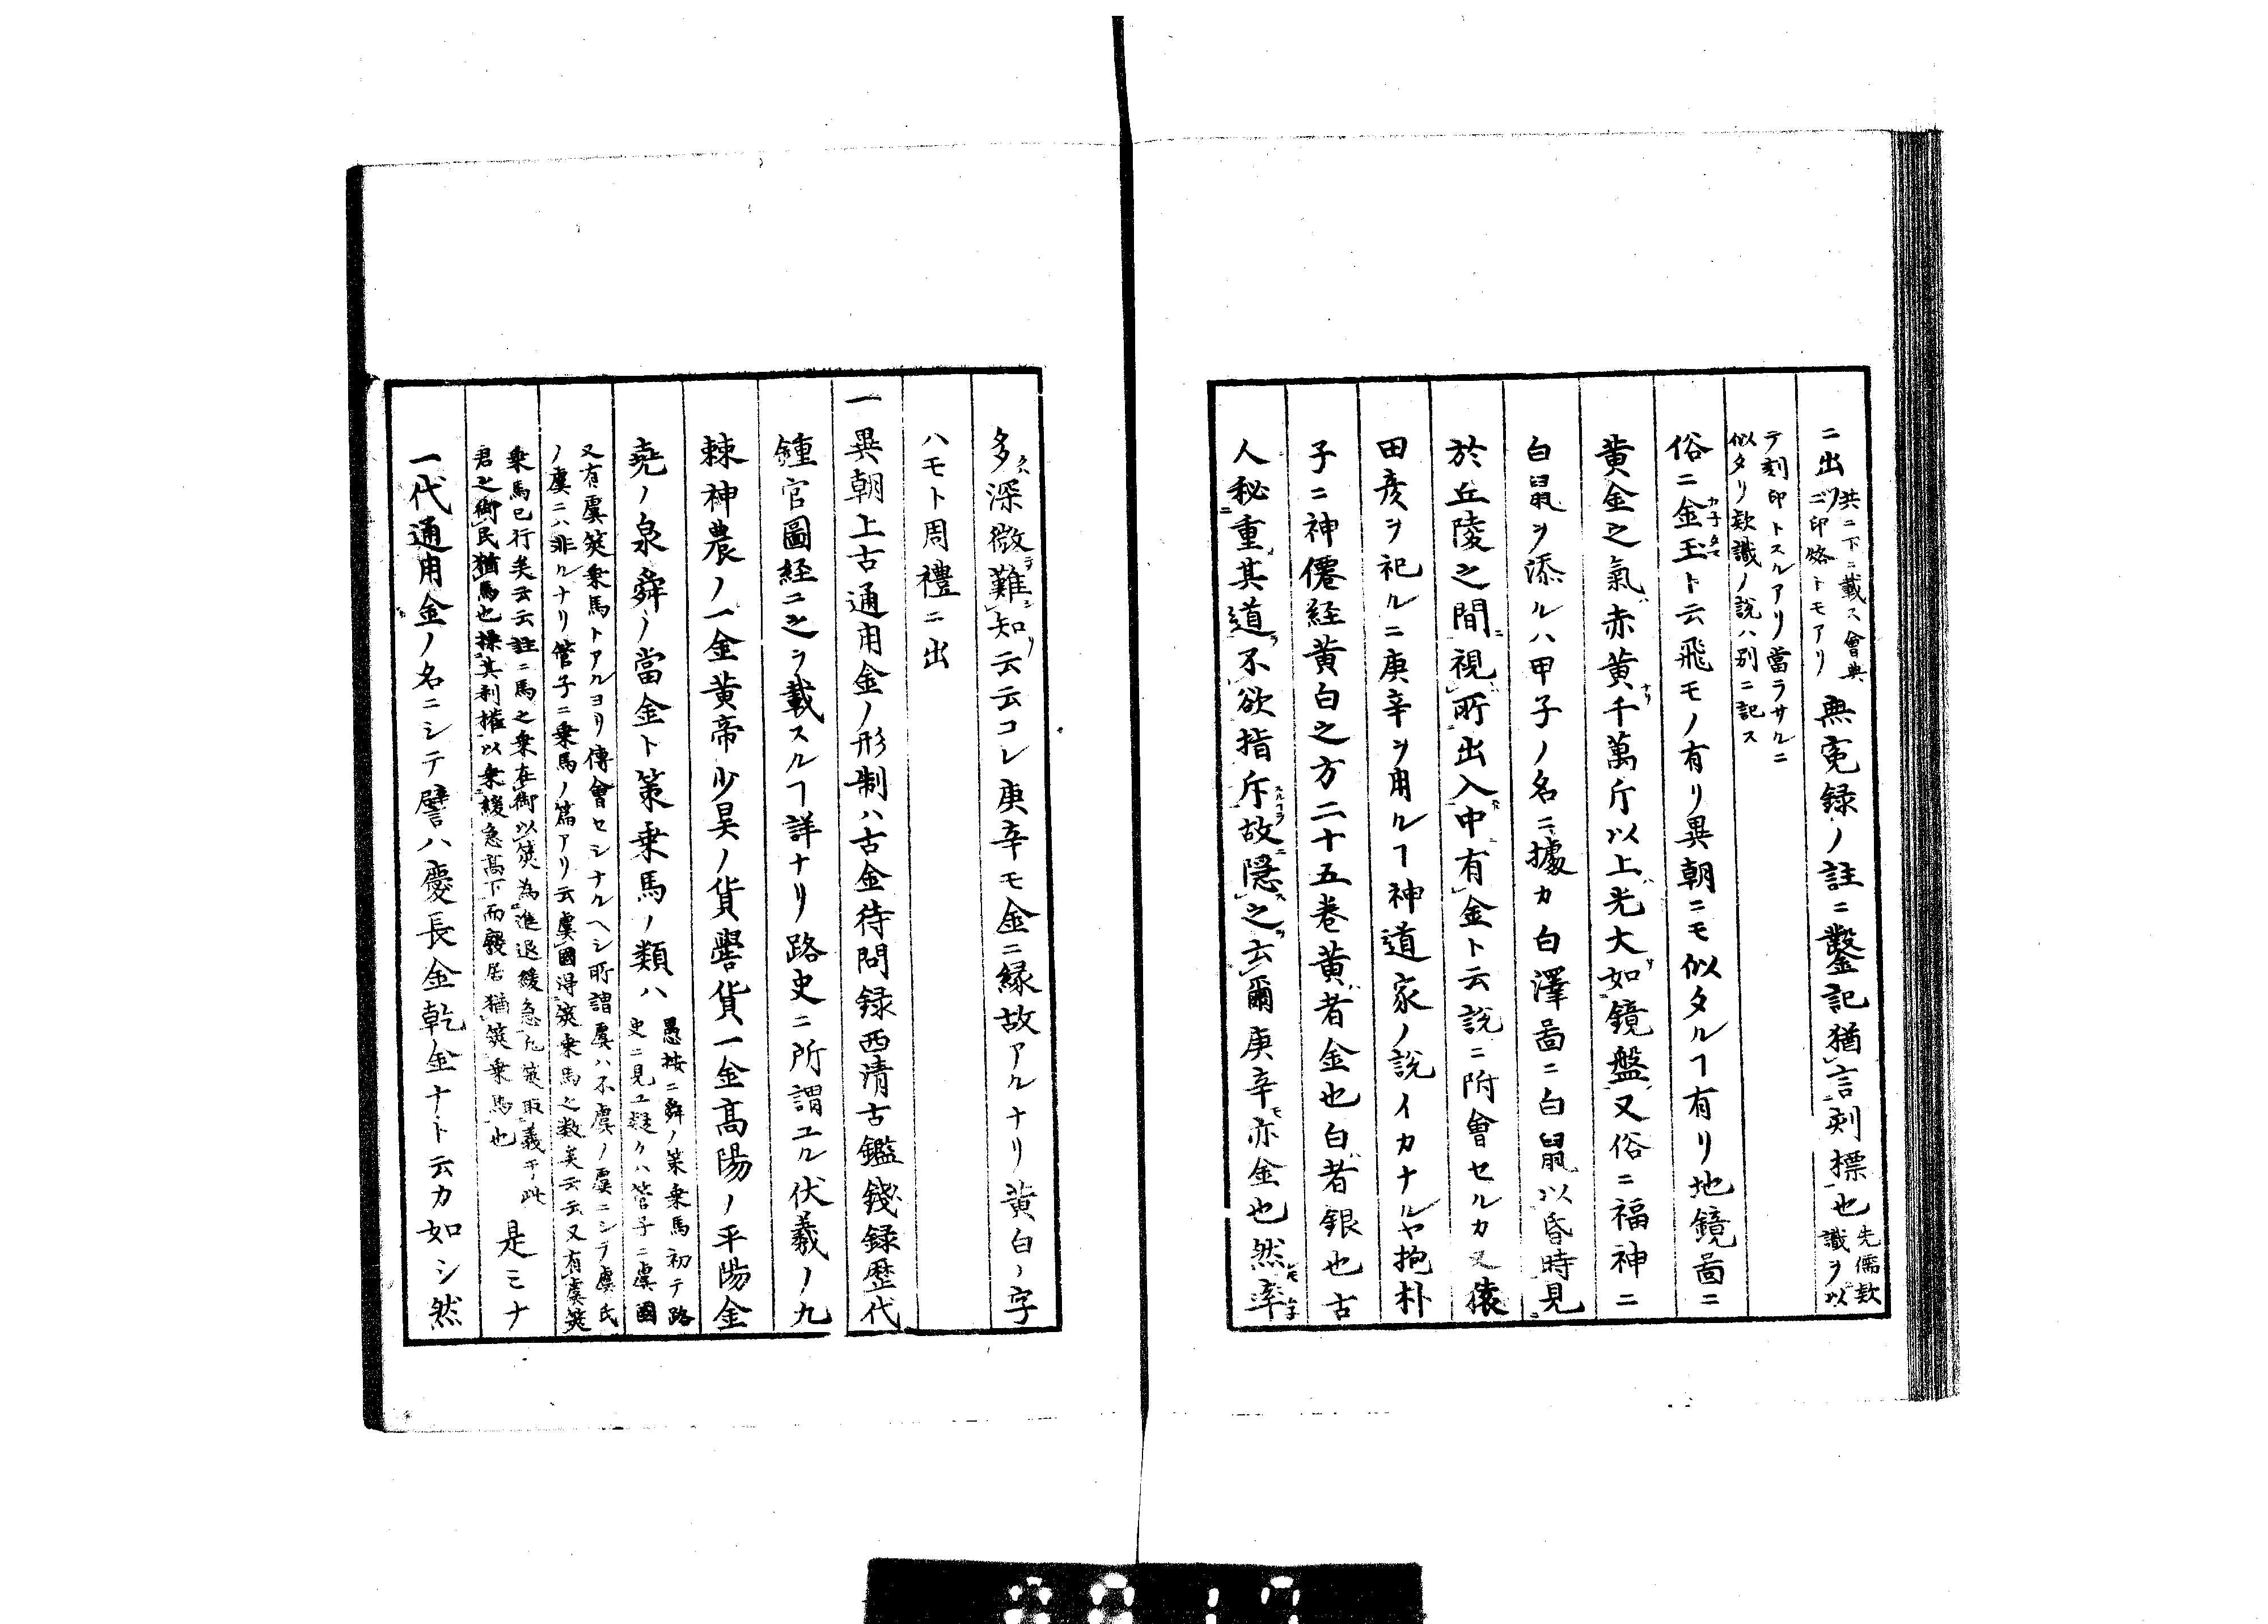 ニ出ツ共ニ下ニ載ス會典ニ印烙トモアリ無寃録ノ註ニ鑿記猶言刻標也先儒欵識ヲ以
テ刻印トスルアリ當ラサルニ似タリ欵識ノ説ハ別ニ記ス
俗ニ金玉ト云飛モノ有リ異朝ニモ似タルヿ有リ地鏡啚ニ
黄金之氣赤黄千萬斤以上光大如鏡盤又俗ニ福神ニ
白鼠ヲ添ルハ甲子ノ名ニ據カ白澤啚ニ白鼠以昏時見
於丘陵之間視所出入中有金ト云説ニ附會セルカ又猿
田彦ヲ祀ルニ庚辛ヲ用ルヿ神道家ノ説イカナルヤ抱朴
子ニ神僊経黄白之方二十五巻黄者金也白者銀也古
人秘重其道不欲指斥故隠之云爾庚辛亦金也然率
多深微難知云云コレ庚辛モ金ニ縁故アルナリ黄白ノ字
ハモト周禮ニ出
一異朝上古通用金ノ形制ハ古金待問録西清古鑑錢録歴代
鍾官圖経ニ之ヲ載スルヿ詳ナリ路史ニ所謂ユル伏羲ノ九
棘神農ノ一金黄帝少昊ノ貨嚳貨一金高陽ノ平陽金
堯ノ泉舜ノ當金ト策乗馬ノ類ハ愚按ニ舜ノ策乗馬初テ路史ニ見ユ疑クハ管子ニ虞國
又有虞筴乗馬トアルヨリ傳會セシナルヘシ所謂虞ハ不虞ノ虞ニシテ虞氏ノ虞ニハ非ルナリ管子ニ乗馬ノ篇アリ云虞國得筴乗馬之数矣云云又有虞筴
乗馬已行矣云云註ニ馬之乗在御以筴為進退緩急凡筴取義于此君之御民猶馬也操其利権以乗緩急高下而廢居猶筴乗馬也是ミナ
一代通用金ノ名ニシテ譬ハ慶長金乾金ナト云カ如シ然